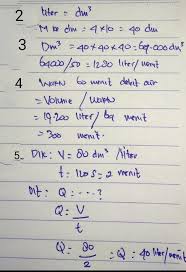 2 liter = dm³
M ke dm = 4 × 10 = 40 dm
3 Dm³ = 40 × 40 × 40 = 64.000 dm³
64000/50 = 1280 liter/menit
4 60 menit debit air
= Volume /
= 19.200 liter / 64 menit
= 300 menit.
5. Dik: V = 80 dm³ /liter
t = 120 s = 2 menit
Dit: Q = ...?
Q = V
t
Q = 80 = Q = 40 liter/menit
2